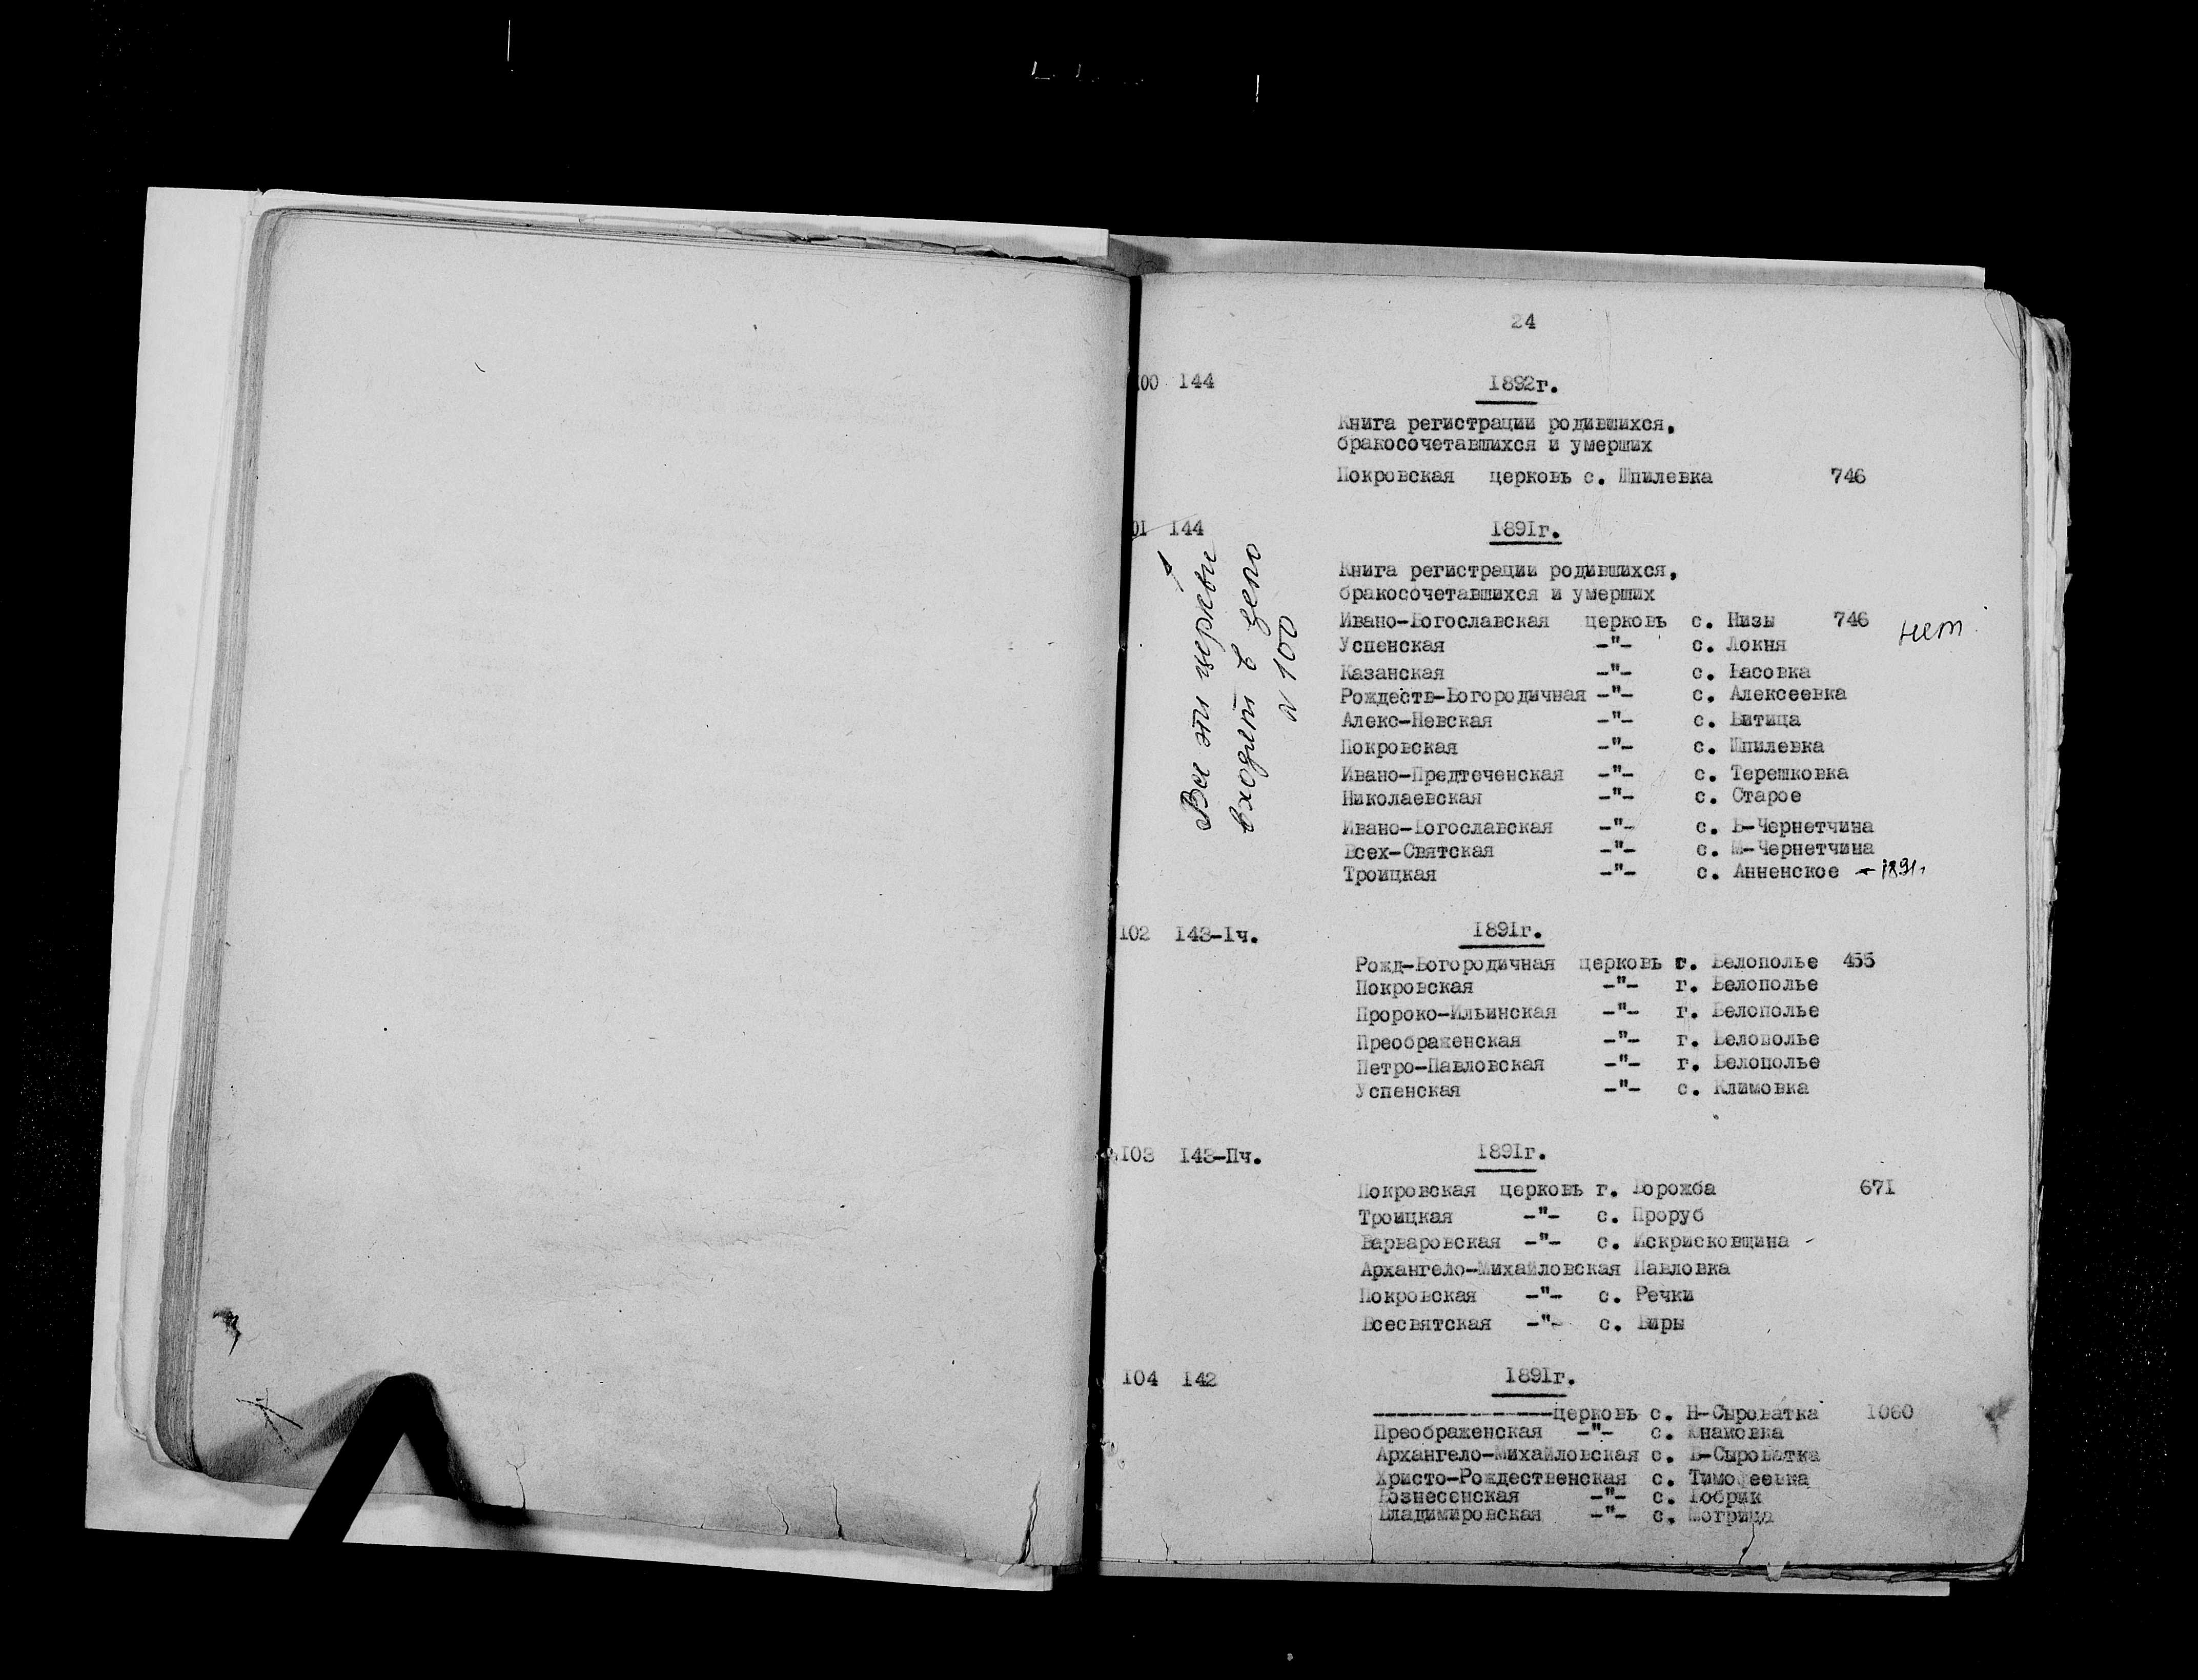 24
100 144 1892г.
Книга регистрации родившихся,
бракосочетавшихся и умерших
Покровская церковь с. Шпилевка 746
101 144 1891г.
Все эти церкви
входят в дело
№ 100
Книга регистрации родившихся,
бракосочетавшихся и умерших
Ивано-Богославская церковь с. Низы 746 нет.
Успенская -"- с. Локня
Казанская -"- с. Басовка
Рождеств-Богородичная -"- с. Алексеевка
Алекс-Невская -"- с. Битица
Покровская -"- с. Шпилевка
Ивано-Предтеченская -"- с. Терешковка
Николаевская -"- с. Старое
Ивано-Богославская -"- с. Б-Чернетчина
Всех-Святская -"- с. М-Чернетчина
Троицкая -"- с. Анненское - 1891г.
102 143-1ч. 1891г.
Рожд-Богородичная церковь г. Белополье 455
Покровская -"- г. Белополье
Пророко-Ильинская -"- г. Белополье
Преображенская -"- г. Белополье
Петро-Павловская -"- г. Белополье
Успенская -"- с. Климовка
103 143-Пч. 1891г.
Покровская церковь г. Ворожба 671
Троицкая -"- с. Проруб
Варваровская -"- с. Искрисковщина -
Архангело-Михайловская Павловка
Покровская -"- с. Речки
Всесвятская -"- с. Виры
104 142 1891г.
---------------церковь с. Н-Сыроватка 1060
Преображенская -"- с. Юнаковка
Архангело-Михайловская с. В-Сыроватка
Христо-Рождественская с. Тимофеевка
Вознесенская -"- с. Бобрик
Владимировская -"- с. Могрица